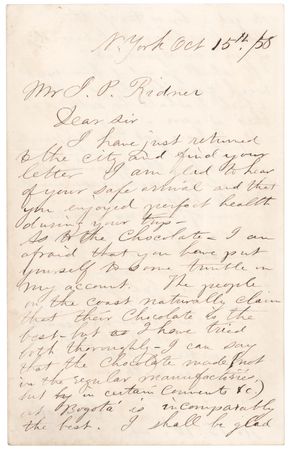 N. York Oct 15th /58
Mr J. P. Ridner
Dear sir
I have just returned
to the city and find your
letter I am glad to hear
of your safe arrival and that
you enjoyed perfect health
during your trip –
As to the Chocolate – I am
afraid that you have put
yourself to some trouble on
my account. The people
on the coast naturally claim
that their Chocolate is the
best – but as I have tried
both thoroughly – I can say
that the Chocolate made (not
in the regular manufactories,
but by in certain Convents &c)
at Bogotá is incomparably
the best. I shall be glad